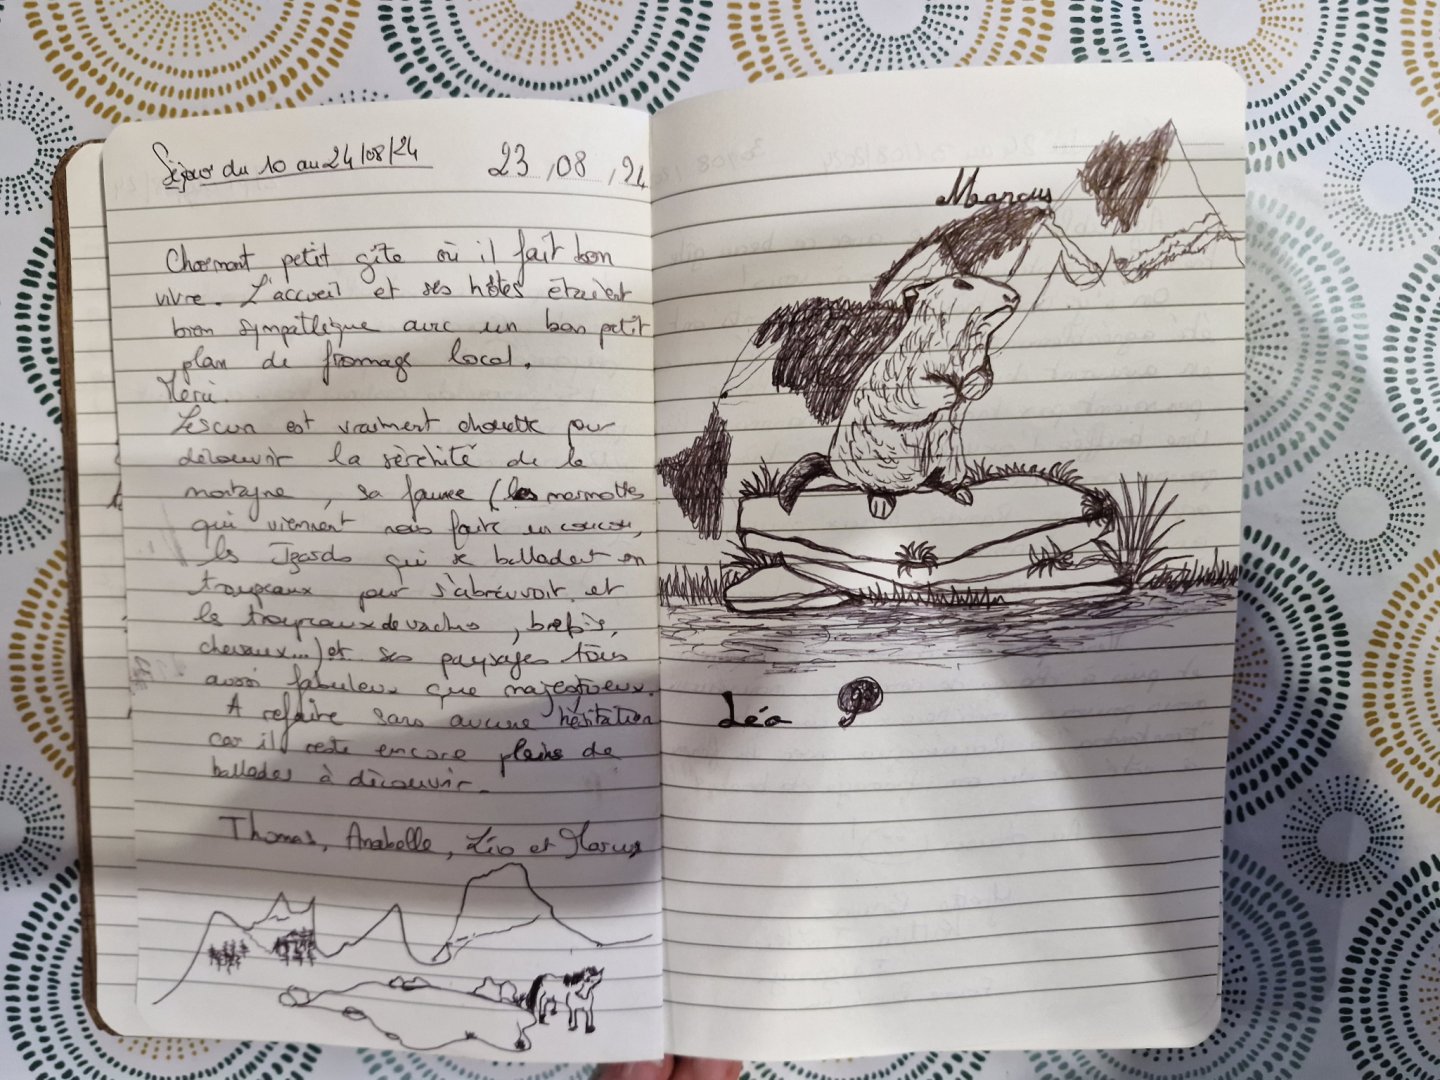 Séjour du 10 au 24/08/24
23,08,24
Charmant petit gîte où il fait bon
vivre. L'accueil et ses hôtes étaient
bien sympathique avec un bon petit
plan de fromage local.
Merci.
Lescun est vraiment chouette pour
découvrir la sérénité de la
montagne, sa faune (les marmottes
qui viennent nous faire un coucou,
les Izards qui se balladent en
troupeaux pour s'abreuvoir, et
les troupeaux de vaches, brebis,
chevaux...) et ses paysages tous
aussi fabuleux que majestueux.
A refaire sans aucune hésitation
car il reste encore pleins de
ballades à découvrir.
Thomas, Anabelle, Léo et Marcus
Marcus
Léo